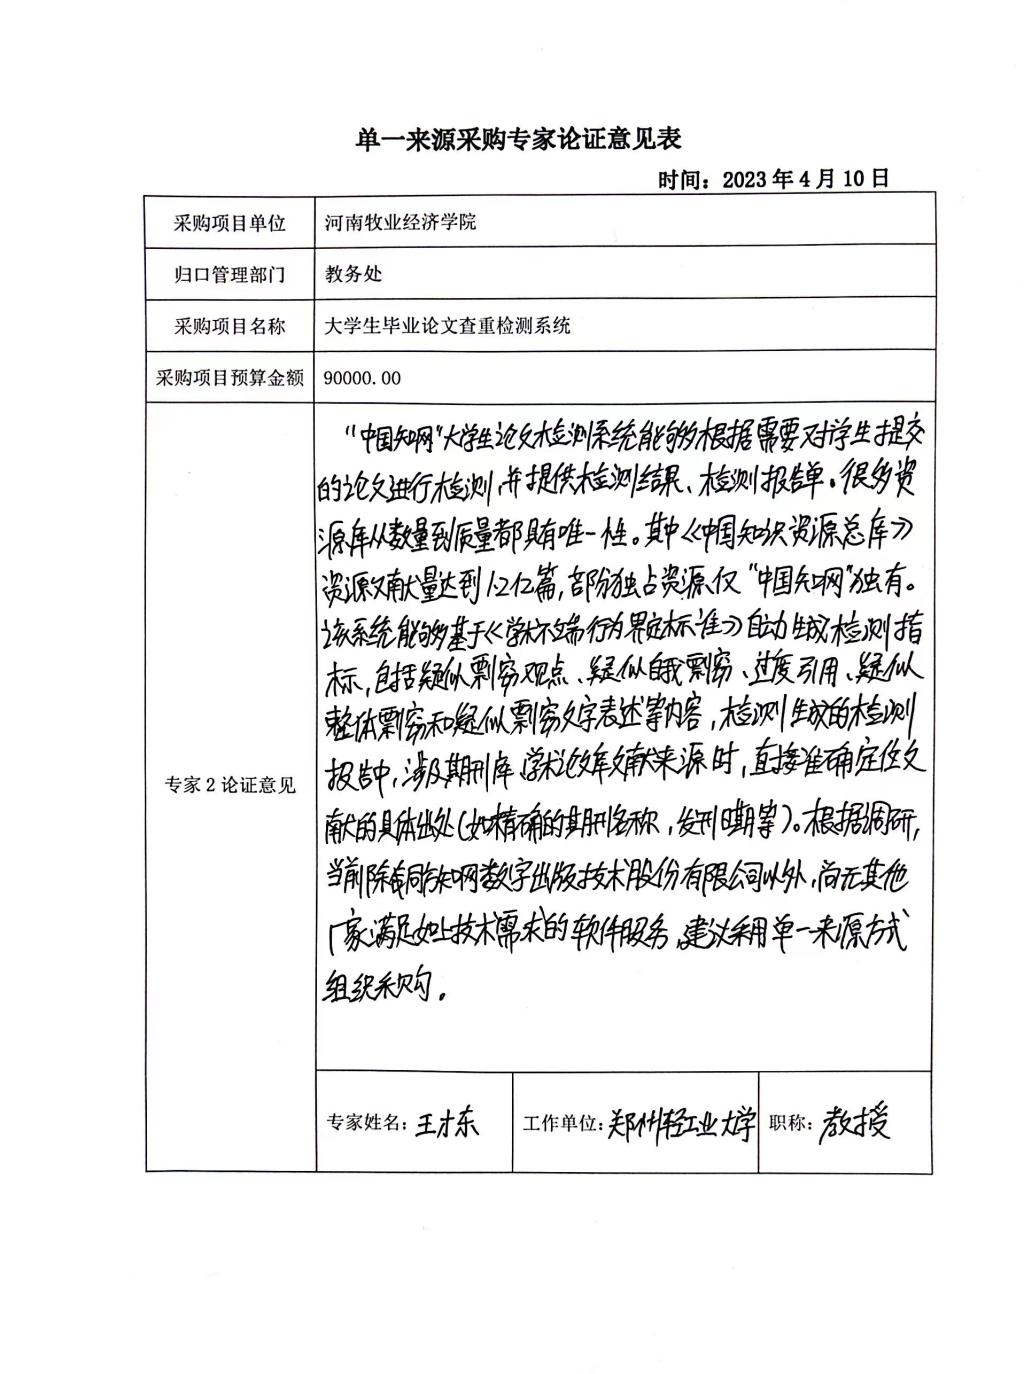 单一来源采购专家论证意见表
时间：2023 年 4 月 10 日
采购项目单位 河南牧业经济学院
归口管理部门 教务处
采购项目名称 大学生毕业论文查重检测系统
采购项目预算金额 90000.00
专家 2 论证意见
“中国知网”大学生论文检测系统能够根据需要对学生提交
的论文进行检测，并提供检测结果、检测报告单。很多资
源库从数量到质量都具有唯一性。其中《中国知识资源总库》
资源文献量达到1.2亿篇，部份独占资源仅“中国知网”独有。
该系统能够基于《学术不端行为界定标准》自动生成检测指
标，包括疑似剽窃观点、疑似自我剽窃、过度引用、疑似
整体剽窃和疑似剽窃文字表述等内容，检测生成的检测
报告中，涉及期刊库、学术论文库文献来源时，直接准确定位文
献的具体出处（如精确的期刊名称，发刊日期等）。根据调研，
当前除同方知网数字出版技术股份有限公司以外，尚无其他
厂家满足如上技术需求的软件服务，建议采用单一来源方式
组织采购。
专家姓名：王才东 工作单位：郑州轻工业大学 职称：教授